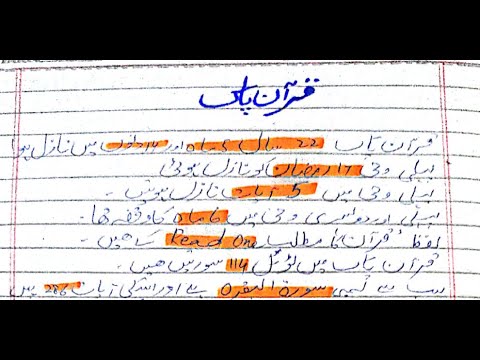 قرآن پاک
قرآن پاک 22 سال 5 ماہ اور 14 دنوں میں نازل ہوا
پہلی وحی 17 رمضان کو نازل ہوئی
پہلی وحی میں 5 آیات نازل ہوئیں۔
پہلی اور دوسری وحی میں 6 ماہ کا وقفہ تھا۔
لفظ قرآن کا مطلب Read کے ہیں۔
قرآن پاک میں ٹوٹل 114 سورتیں ھیں۔
سب سے لمبی سورۃ البقرہ ہے اور اسکی آیات 286 ہیں